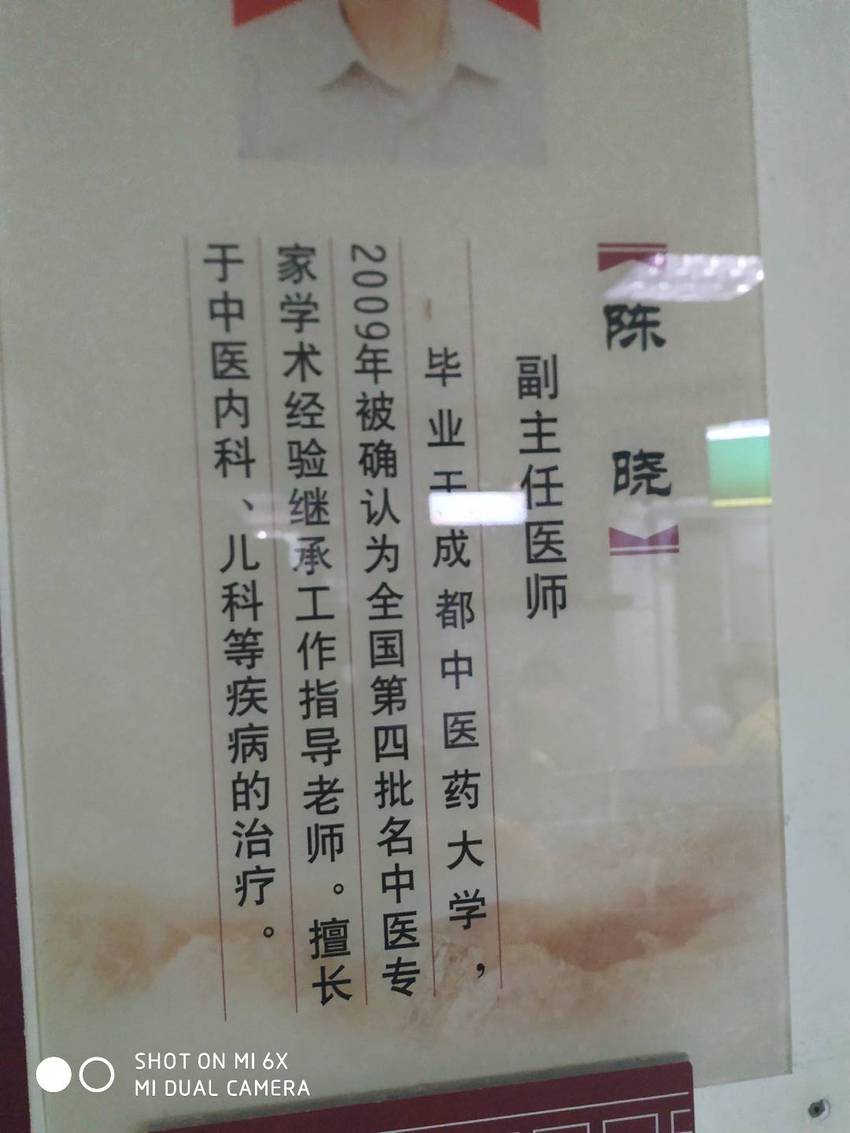 陈晓
副主任医师
毕业于成都中医药大学，
2009年被确认为全国第四批名中医专
家学术经验继承工作指导老师。擅长
于中医内科、儿科等疾病的治疗。
SHOT ON MI 6X
MI DUAL CAMERA